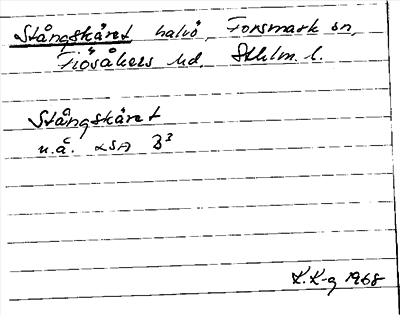 Stångskäret halvö, Forsmark sn,
Frösåkers hd, Sthlm. l.
Stångskäret
u.å. LSA B²
K.K-g 1968